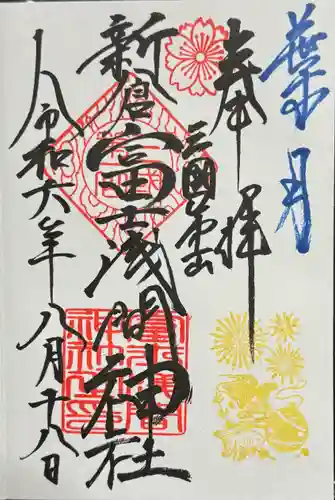 葉月
奉拝
三國第一山
新倉富士浅間神社
令和六年八月十八日